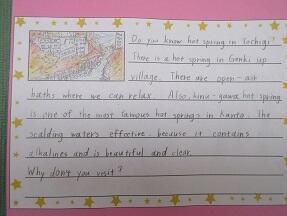 Do you know hot spring in Tochigi?
There is a hot spring in Genki up
village. There are open-air
baths where we can relax. Also, kinu-gawa hot spring
is one of the most famous hot springs in Kanto. The
scalding waters effective. because it contains
alkalines and is beautiful and clear.
Why don't you visit?